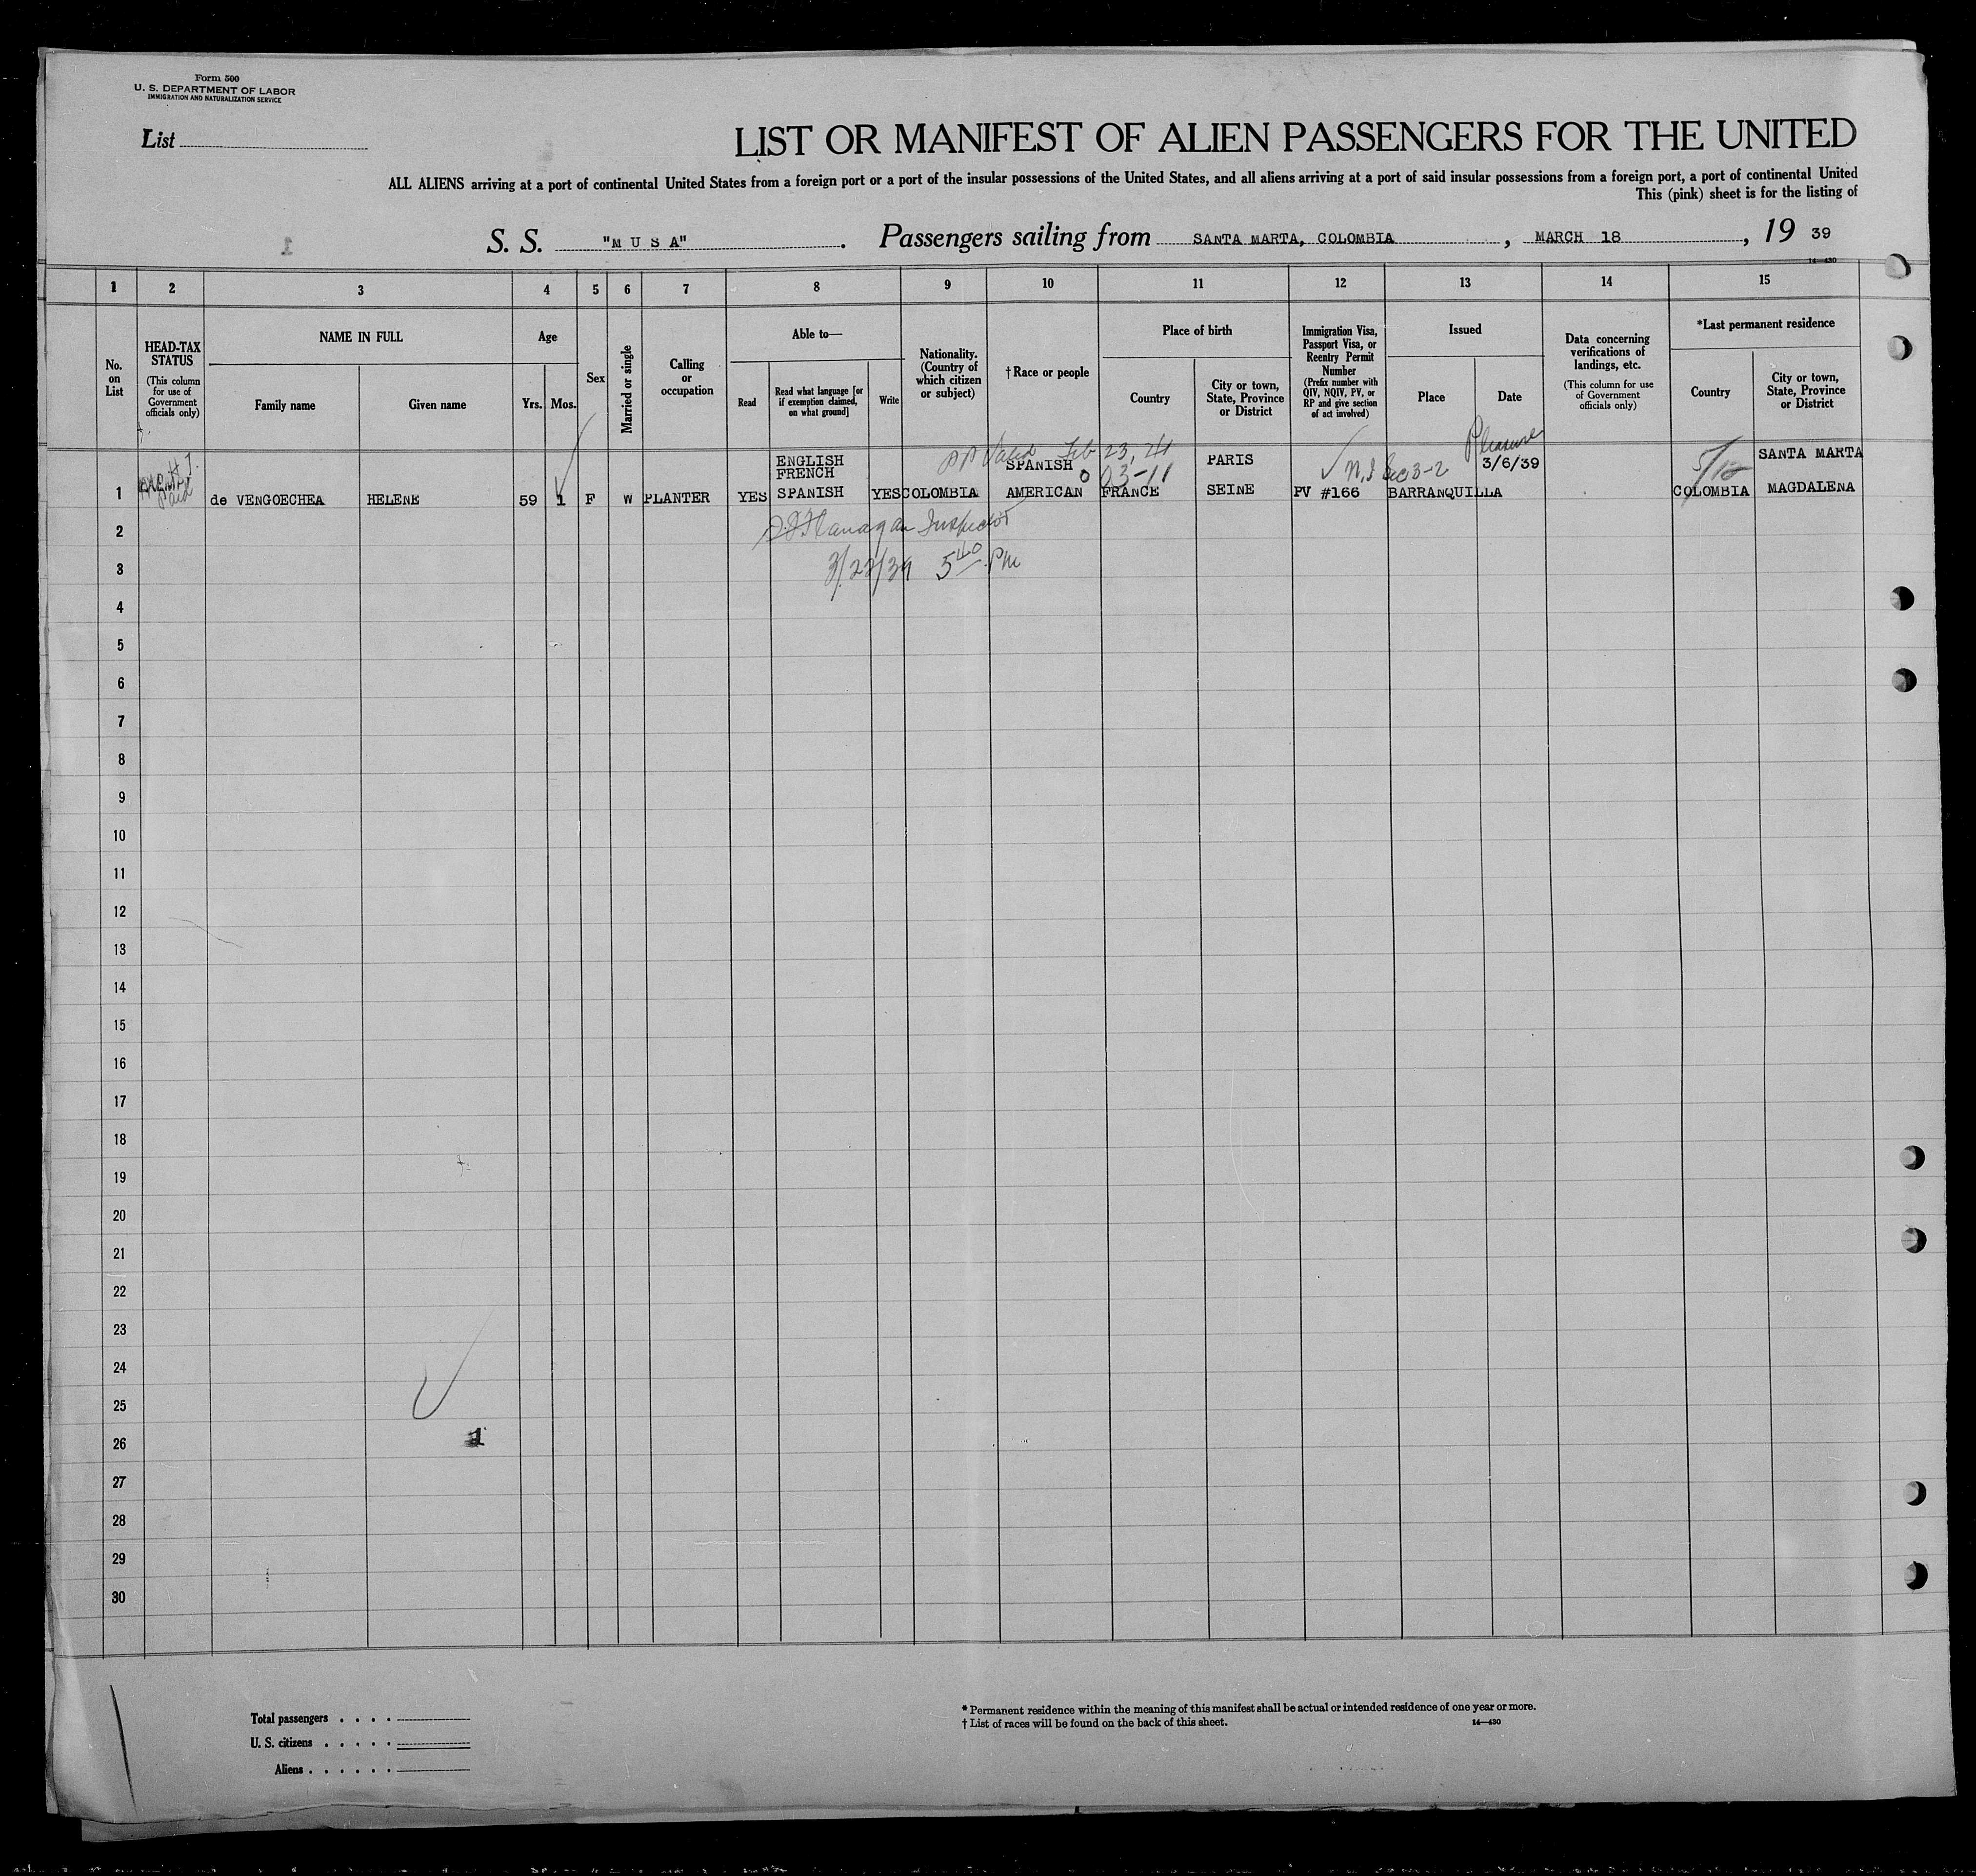 Form 500
U. S. DEPARTMENT OF LABOR
IMMIGRATION AND NATURALIZATION SERVICE
List
LIST OR MANIFEST OF ALIEN PASSENGERS FOR THE UNITED
ALL ALIENS arriving at a port of continental United States from a foreign port or a port of the insular possessions of the United States, and all aliens arriving at a port of said insular possessions from a foreign port, a port of continental United
This (pink) sheet is for the listing of
1
S. S. "M U S A". Passengers sailing from SANTA MARTA, COLOMBIA, MARCH 18, 19 39
14—430
1 2 3 4 5 6 7 8 9 10 11 12 13 14 15
No. on List
HEAD-TAX STATUS
(This column for use of Government officials only)
NAME IN FULL
Family name
Given name
Age
Yrs.
Mos.
Sex
Married or single
Calling or occupation
Able to—
Read
Read what language [or if exemption claimed, on what ground]
Write
Nationality. (Country of which citizen or subject)
† Race or people
Place of birth
Country
City or town, State, Province or District
Immigration Visa, Passport Visa, or Reentry Permit Number
(Prefix number with QIV, NQIV, PV, or RP and give section of act involved)
Issued
Place
Date
Data concerning verifications of landings, etc.
(This column for use of Government officials only)
*Last permanent residence
Country
City or town, State, Province or District
Valid Feb 23, 41
Pleasure
ENGLISH SPANISH PARIS 3/6/39 SANTA MARTA
FRENCH 03-11 3-2 5/12
1 de VENGOECHEA HELENE 59 1 F W PLANTER YES SPANISH YES COLOMBIA AMERICAN FRANCE SEINE PV #166 BARRANQUILLA COLOMBIA MAGDALENA
2 Flanagan Inspector
3 3/22/39 5 40 PM
4
5
6
7
8
9
10
11
12
13
14
15
16
17
18
19
20
21
22
23
24
25
26 1
27
28
29
30
Total passengers
U. S. citizens
Aliens
* Permanent residence within the meaning of this manifest shall be actual or intended residence of one year or more.
† List of races will be found on the back of this sheet.
14—430